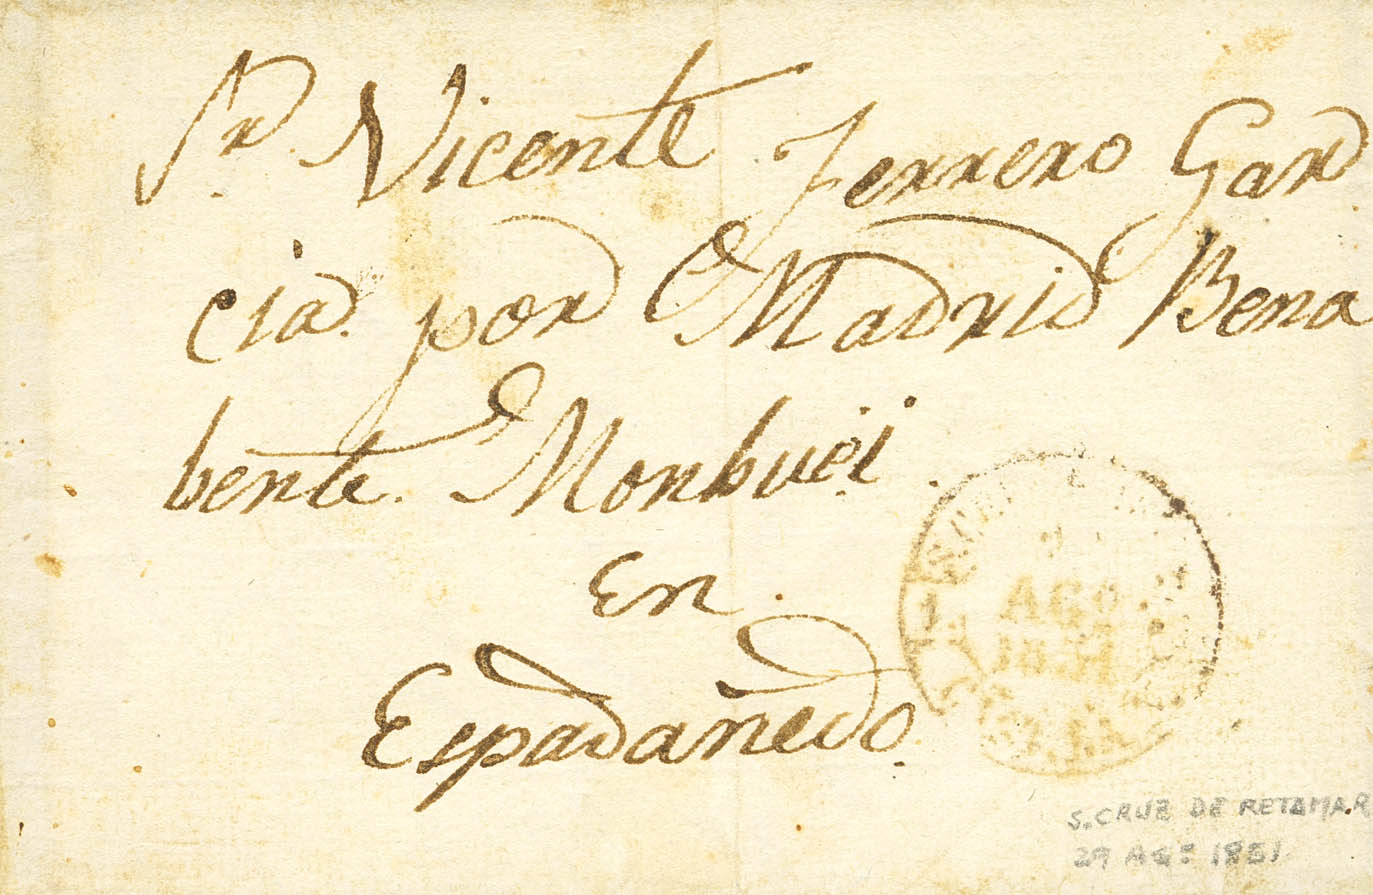 Sr. Vicente Ferrero Gar
cia. por Madrid Bena
bente. Monbuei.
En
Espadañedo.
AGO
1851
S. CRUZ DE RETAMAR
29 AGº 1851